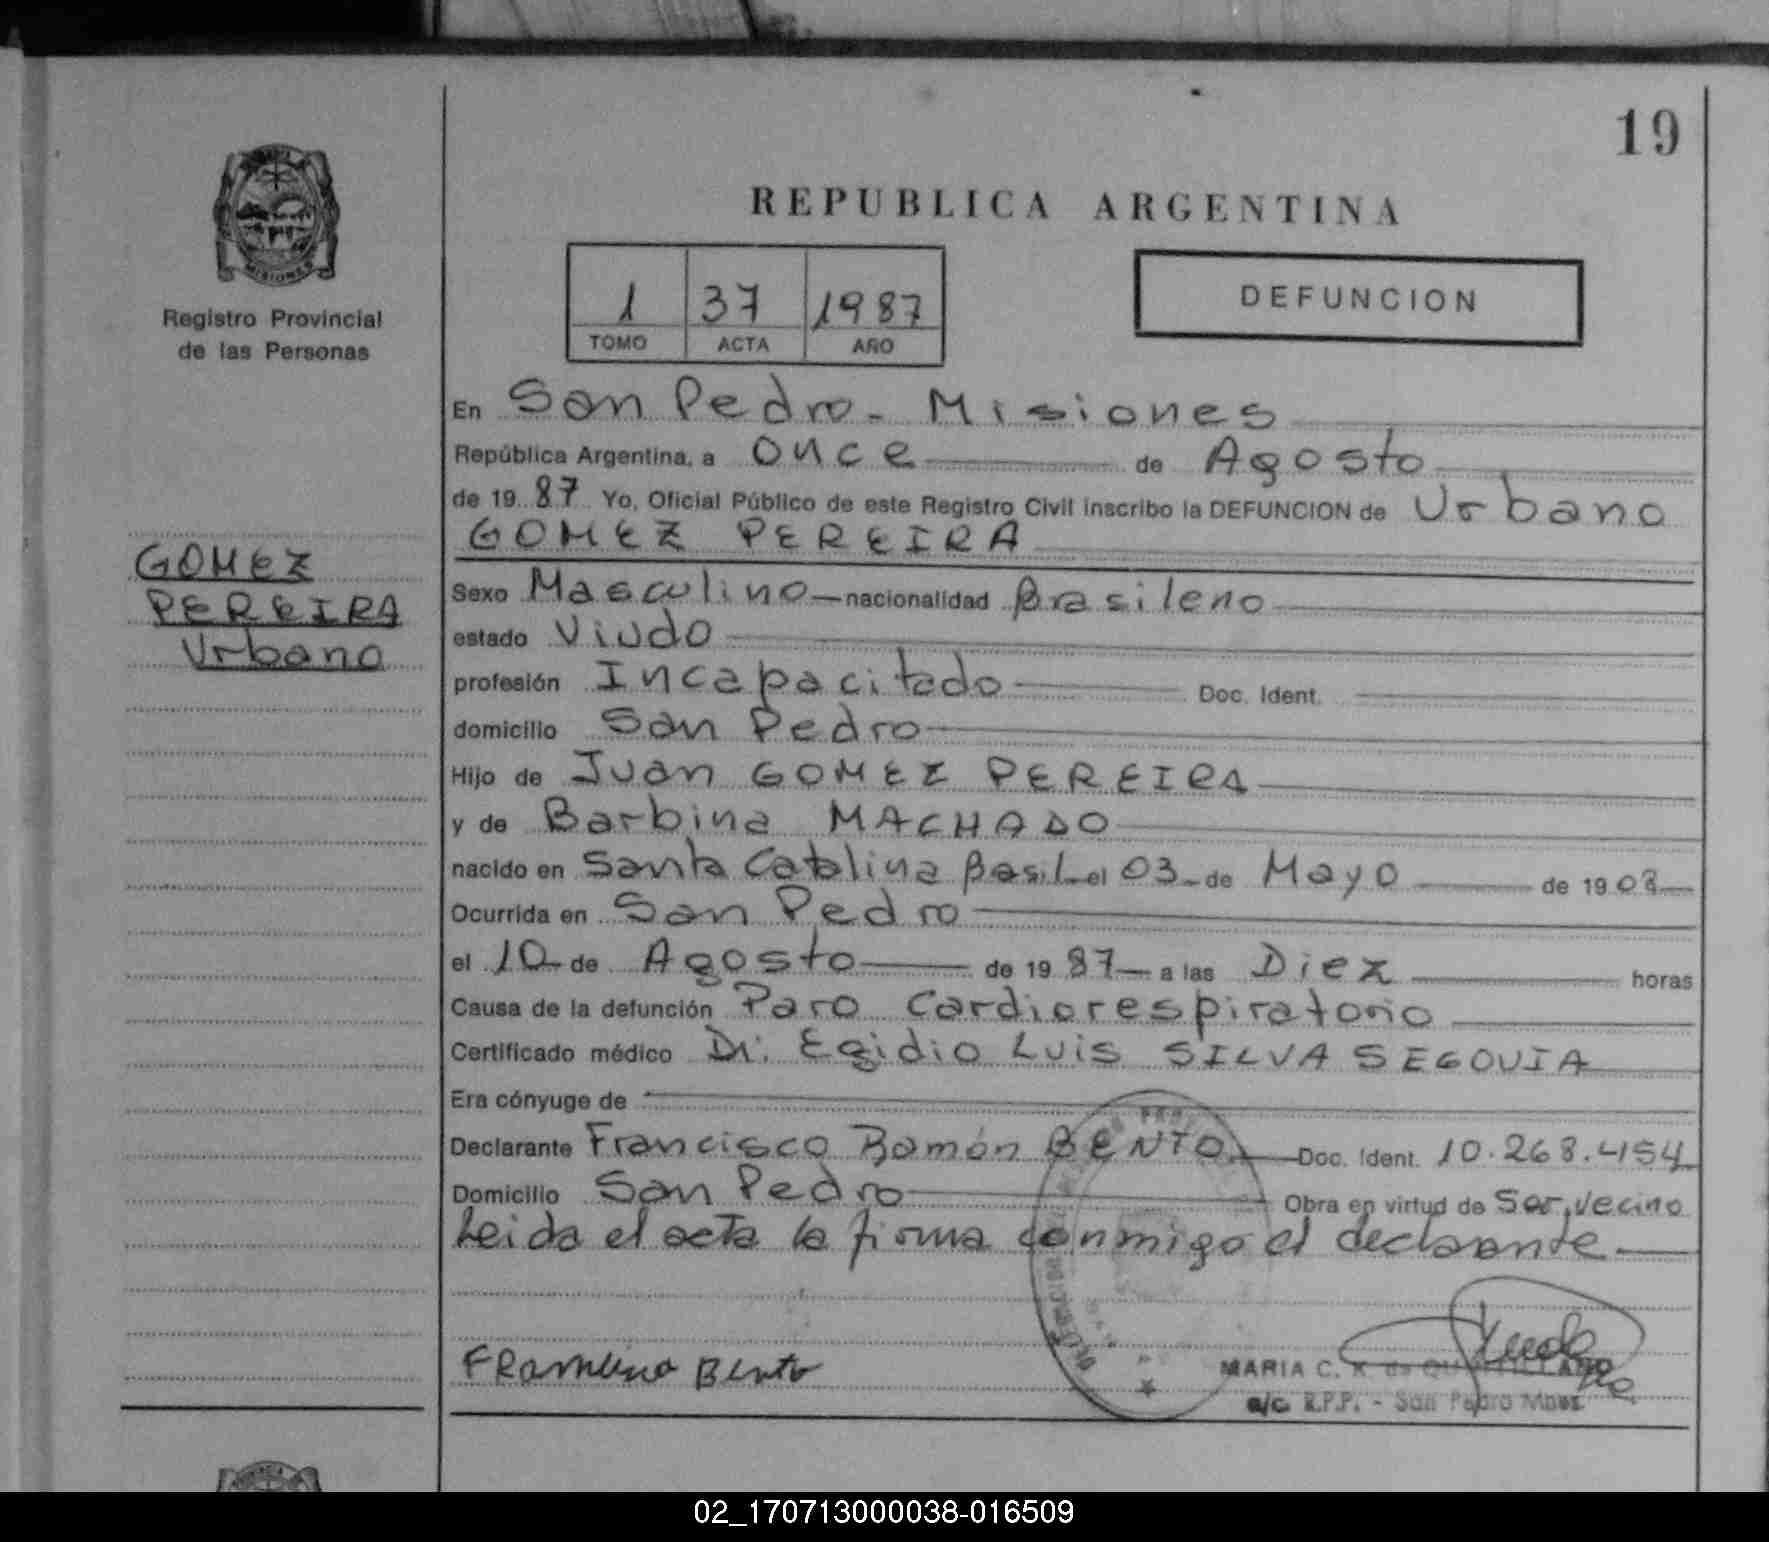 19
REPUBLICA ARGENTINA
MISIONES
Registro Provincial
de las Personas
1 37 1987
TOMO ACTA AÑO
DEFUNCION
En San Pedro - Misiones
República Argentina, a Once de Agosto
de 19 87 Yo, Oficial Público de este Registro Civil inscribo la DEFUNCION de Urbano
GOMEZ PEREIRA
GOMEZ
PEREIRA
Urbano
Sexo Masculino nacionalidad Brasileno
estado Viudo
profesión Incapacitado Doc. Ident.
domicilio San Pedro
Hijo de Juan GOMEZ PEREIRA
y de Barbina MACHADO
nacido en Santa Catalina Basil el 03 de Mayo de 19 08
Ocurrida en San Pedro
el 10 de Agosto de 19 87 a las Diez horas
Causa de la defunción Paro Cardiorespiratorio
Certificado médico Dr. Egidio Luis SILVA SEGOVIA
Era cónyuge de
Declarante Francisco Ramón BENTO Doc. Ident. 10.268.454
Domicilio San Pedro Obra en virtud de Ser vecino
Leida el acta la firma conmigo el declarante
Bento
MARIA C. K. de
a/c. R.P.P. - San Pedro Mnes.
02_170713000038-016509